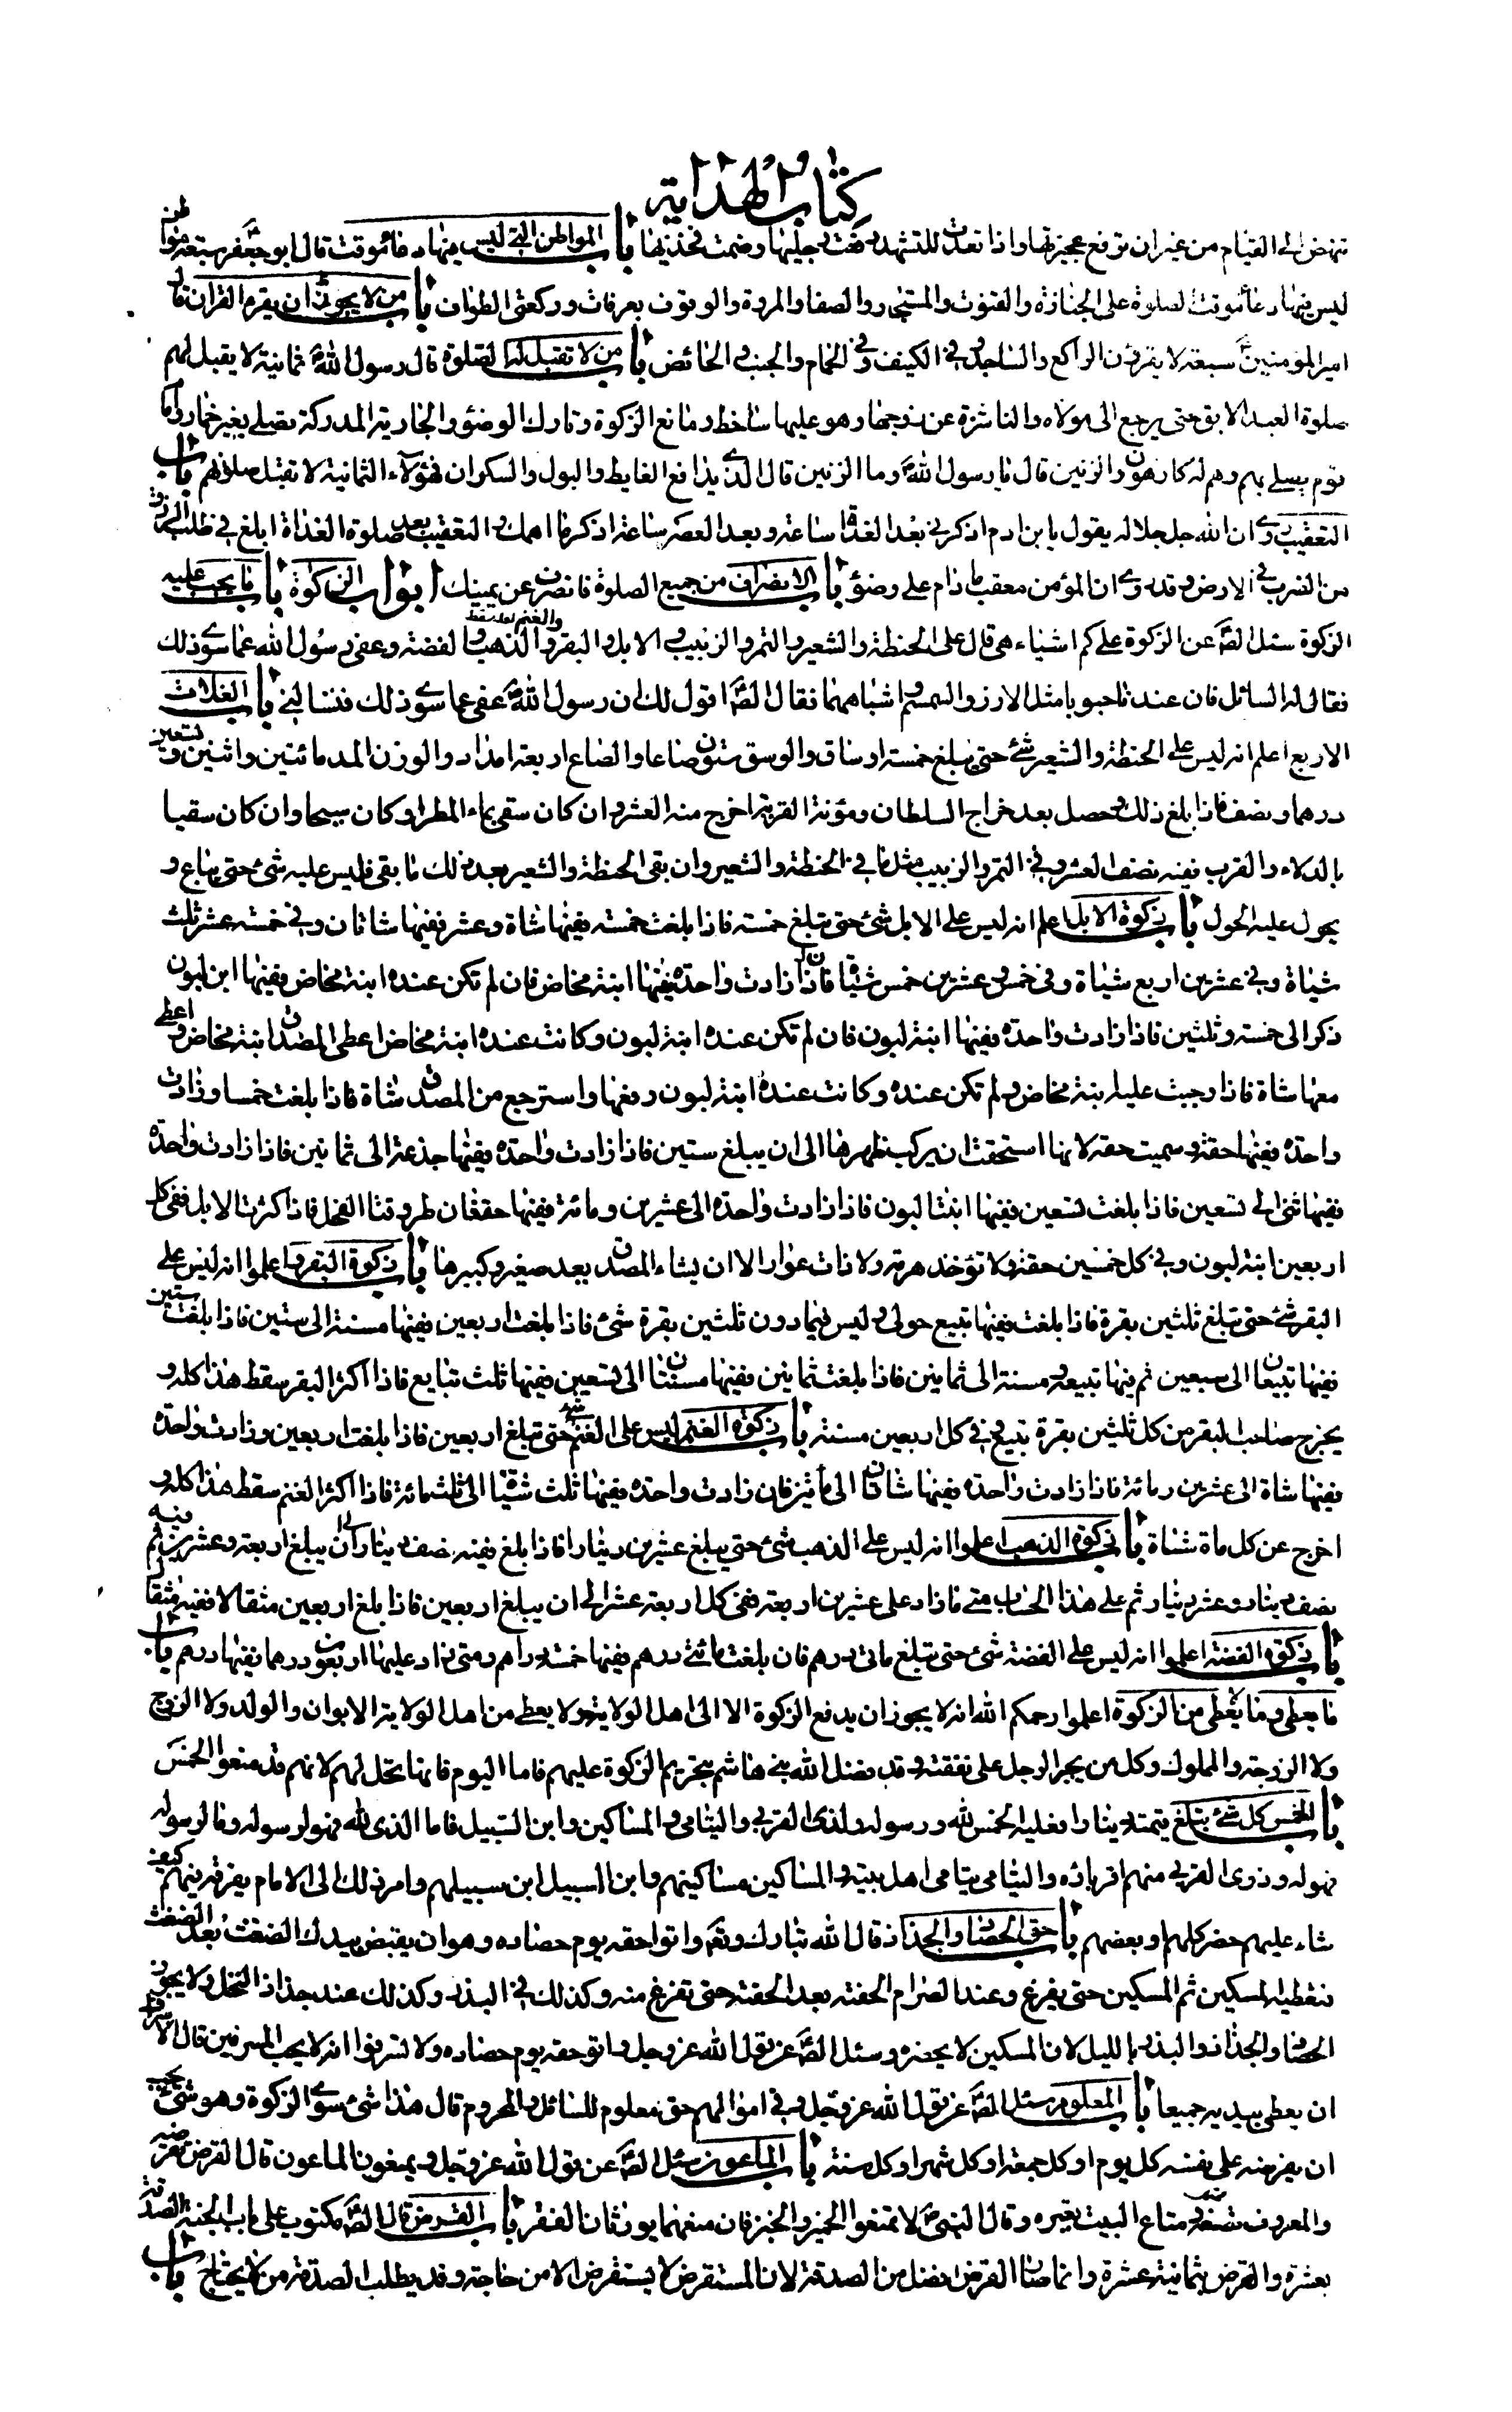 كتاب الهداية
تنهض الى القيام من غير ان ترفع عجيزتها واذا قعدت للتشهد رفعت رجليها وضمت فخذيها باب المواطن التي ليس فيها دعاء موقت قال ابو جعفر سبعة مواطن
ليس فيها دعاء موقت الصلوة على الجنازة والقنوت والمستجار والصفا والمروة والوقوف بعرفات وركعتي الطواف باب من لا يجوز ان يقرء القران قال
امير المؤمنين سبعة لا يقرؤن الراكع والساجد وفي الكنيف وفي الحمام والجنب والحائض باب من لا تقبل له الصلوة قال رسول الله ثمانية لا يقبل لهم
صلوة العبد الابق حتى يرجع الى مولاه والناشزة عن زوجها وهو عليها ساخط ومانع الزكوة وتارك الوضوء والجارية المدركة تصلي بغير خمار وامام
قوم يصلي بهم وهم له كارهون والزنين قال يا رسول الله وما الزنين قال الذي يدافع الغايط والبول والسكران فهؤلاء الثمانية لا تقبل صلوتهم باب
التعقيب روي ان الله جل جلاله يقول يا بن ادم اذكرني بعد الغداة ساعة وبعد العصر ساعة اذكرها اهمك والتعقيب بعد صلوة الغداة ابلغ في طلب الرزق
من الضرب في الارض وقد روي ان المؤمن معقب ما دام على وضوء باب الانصراف من جميع الصلوة فانصرف عن يمينك ابواب الزكوة باب ما يجب عليه
الزكوة سئل الص عن الزكوة على كم اشياء هي قال على الحنطة والشعير والتمر والزبيب والابل والبقر والغنم والذهب والفضة وعفى رسول الله عما سوى ذلك
فقال له السائل فان عندنا حبوبا مثل الارز والسمسم واشباههما فقال الص اقول لك ان رسول الله عفى عما سوى ذلك فتسالني باب الغلات
الاربع اعلم انه ليس على الحنطة والشعير شئ حتى يبلغ خمسة اوساق والوسق ستون صاعا والصاع اربعة امداد والوزن المد مائتين واثنين وتسعين
درهما ونصف فاذا بلغ ذلك وحصل بعد خراج السلطان ومؤنة القرية اخرج منه العشر ان كان سقي بماء المطر او كان سيحا وان كان سقيا
بالدلاء والقرب ففيه نصف العشر وفي التمر والزبيب مثل ما في الحنطة والشعير وان بقي الحنطة والشعير بعد ذلك ما بقي فليس عليه شئ حتى يباع و
يحول عليه الحول باب زكوة الابل اعلم انه ليس على الابل شئ حتى تبلغ خمسة فاذا بلغت خمسة ففيها شاة وعشر ففيها شاتان وفي خمسة عشر ثلث
شياة وفي عشرين اربع شياة وفي خمس وعشرين خمس شياة فاذا زادت واحدة ففيها ابنة مخاض فان لم تكن عنده ابنة مخاض ففيها ابن لبون
ذكر الى خمسة وثلثين فاذا زادت واحدة ففيها ابنة لبون فان لم تكن عنده ابنة لبون وكانت عنده ابنة مخاض اعطى المصدق ابنة مخاض واعطى
معها شاة فاذا وجبت عليه ابنة مخاض ولم تكن عنده وكانت عنده ابنة لبون دفعها واسترجع من المصدق شاة فاذا بلغت خمسا وزادت
واحدة ففيها حقة وسميت حقة لانها استحقت ان يركب ظهرها الى ان يبلغ ستين فاذا زادت واحدة ففيها جذعة الى ثمانين فاذا زادت واحدة
ففيها ثني الى تسعين فاذا بلغت تسعين ففيها ابنتا لبون فاذا زادت واحدة الى عشرين ومائة ففيها حقتان طروقتا الفحل فاذا كثرت الابل ففي كل
اربعين ابنة لبون وفي كل خمسين حقة ولا تؤخذ هرمة ولا ذات عوار الا ان يشاء المصدق يعد صغيرها وكبيرها باب زكوة البقر اعلموا انه ليس على
البقر شئ حتى تبلغ ثلثين بقرة فاذا بلغت ففيها تبيع حولي وليس فيما دون ثلثين بقرة شئ فاذا بلغت اربعين ففيها مسنة الى ستين فاذا بلغت ستين
ففيها تبيعان الى سبعين ثم فيها تبيعة ومسنة الى ثمانين فاذا بلغت ثمانين ففيها مسنتان الى تسعين ففيها ثلث تبايع فاذا اكثر البقر سقط هذا كله و
يخرج صاحب البقر من كل ثلثين بقرة تبيع وفي كل اربعين مسنة باب زكوة الغنم ليس على الغنم شئ حتى تبلغ اربعين فاذا بلغت اربعين وزادت واحدة
ففيها شاة الى عشرين ومائة فاذا زادت واحدة ففيها شاتان الى مأتين فان زادت واحدة ففيها ثلث شياة الى ثلثمائة فاذا اكثر الغنم سقط هذا كله و
اخرج عن كل ماة شاة باب زكوة الذهب اعلموا انه ليس على الذهب شئ حتى يبلغ عشرين دينارا فاذا بلغ ففيه نصف دينار الى ان يبلغ اربعة وعشرين ثم فيه
نصف دينار وعشر دينار ثم على هذا الحساب متى فازاد على عشرين اربعة ففي كل اربعة عشر الى ان يبلغ اربعين فاذا بلغ اربعين مثقالا ففيه مثقال
باب زكوة الفضة اعلموا انه ليس على الفضة شئ حتى تبلغ مائتي درهم فان بلغت مائتي درهم ففيها خمسة دراهم ومتى زاد عليها اربعون درهما ففيها درهم باب
ما يعطى وما يعطى من الزكوة اعلموا رحمكم الله انه لا يجوز ان يدفع الزكوة الا الى اهل الولاية ولا يعطى من اهل الولاية الابوان والولد ولا الزوج
ولا الزوجة والمملوك وكل من يجبر الرجل على نفقته وقد فضل الله بني هاشم بتحريم الزكوة عليهم فاما اليوم فانها تحل لهم لانهم قد منعوا الخمس
باب الخمس كل شئ يبلغ قيمته دينارا ففيه الخمس لله ورسوله ولذي القربى واليتامى والمساكين وابن السبيل فاما الذي لله فهو لرسوله وما لرسوله
فهو له وذوى القربى منهم اقرباؤه واليتامى يتامى اهل بيته والمساكين مساكينهم وابن السبيل ابن سبيلهم وامر ذلك الى الامام يفرقه فيهم كيف
شاء عليهم حضر كلهم او بعضهم باب حق الحصاد والجذاذ قال الله تبارك وتع واتوا حقه يوم حصاده وهو ان يقبض بيدك الضغث بعد الضغث
فتعطيه المسكين ثم المسكين حتى يفرغ وعند الصرام الحفنة بعد الحفنة حتى تفرغ منه وكذلك في البذر وكذلك عند جذاذ النخل ولا يجوز
الحصاد والجذاذ والبذر بالليل لان المسكين لا يحضره وسئل الص عن قول الله عز وجل واتوا حقه يوم حصاده ولا تسرفوا انه لا يحب المسرفين قال الاسراف
ان يعطى بيديه جميعا باب المعلوم سئل الص عن قول الله عز وجل وفي اموالهم حق معلوم للسائل والمحروم قال هذا شئ سوى الزكوة وهو شئ يجب
ان يفرضه على نفسه كل يوم او كل جمعة او كل شهر او كل سنة باب الماعون سئل الص عن قول الله عز وجل ويمنعون الماعون قال القرض تقرضه
والمعروف تصنعه ومتاع البيت تعيره وقال النبي ص لا تمنعوا الخمير والخبز فان منعهما يورثان الفقر باب القرض قال الص مكتوب على باب الجنة الصدقة
بعشرة والقرض بثمانية عشرة وانما صار القرض افضل من الصدقة لان المستقرض لا يستقرض الا من حاجة وقد يطلب الصدقة من لا يحتاج باب